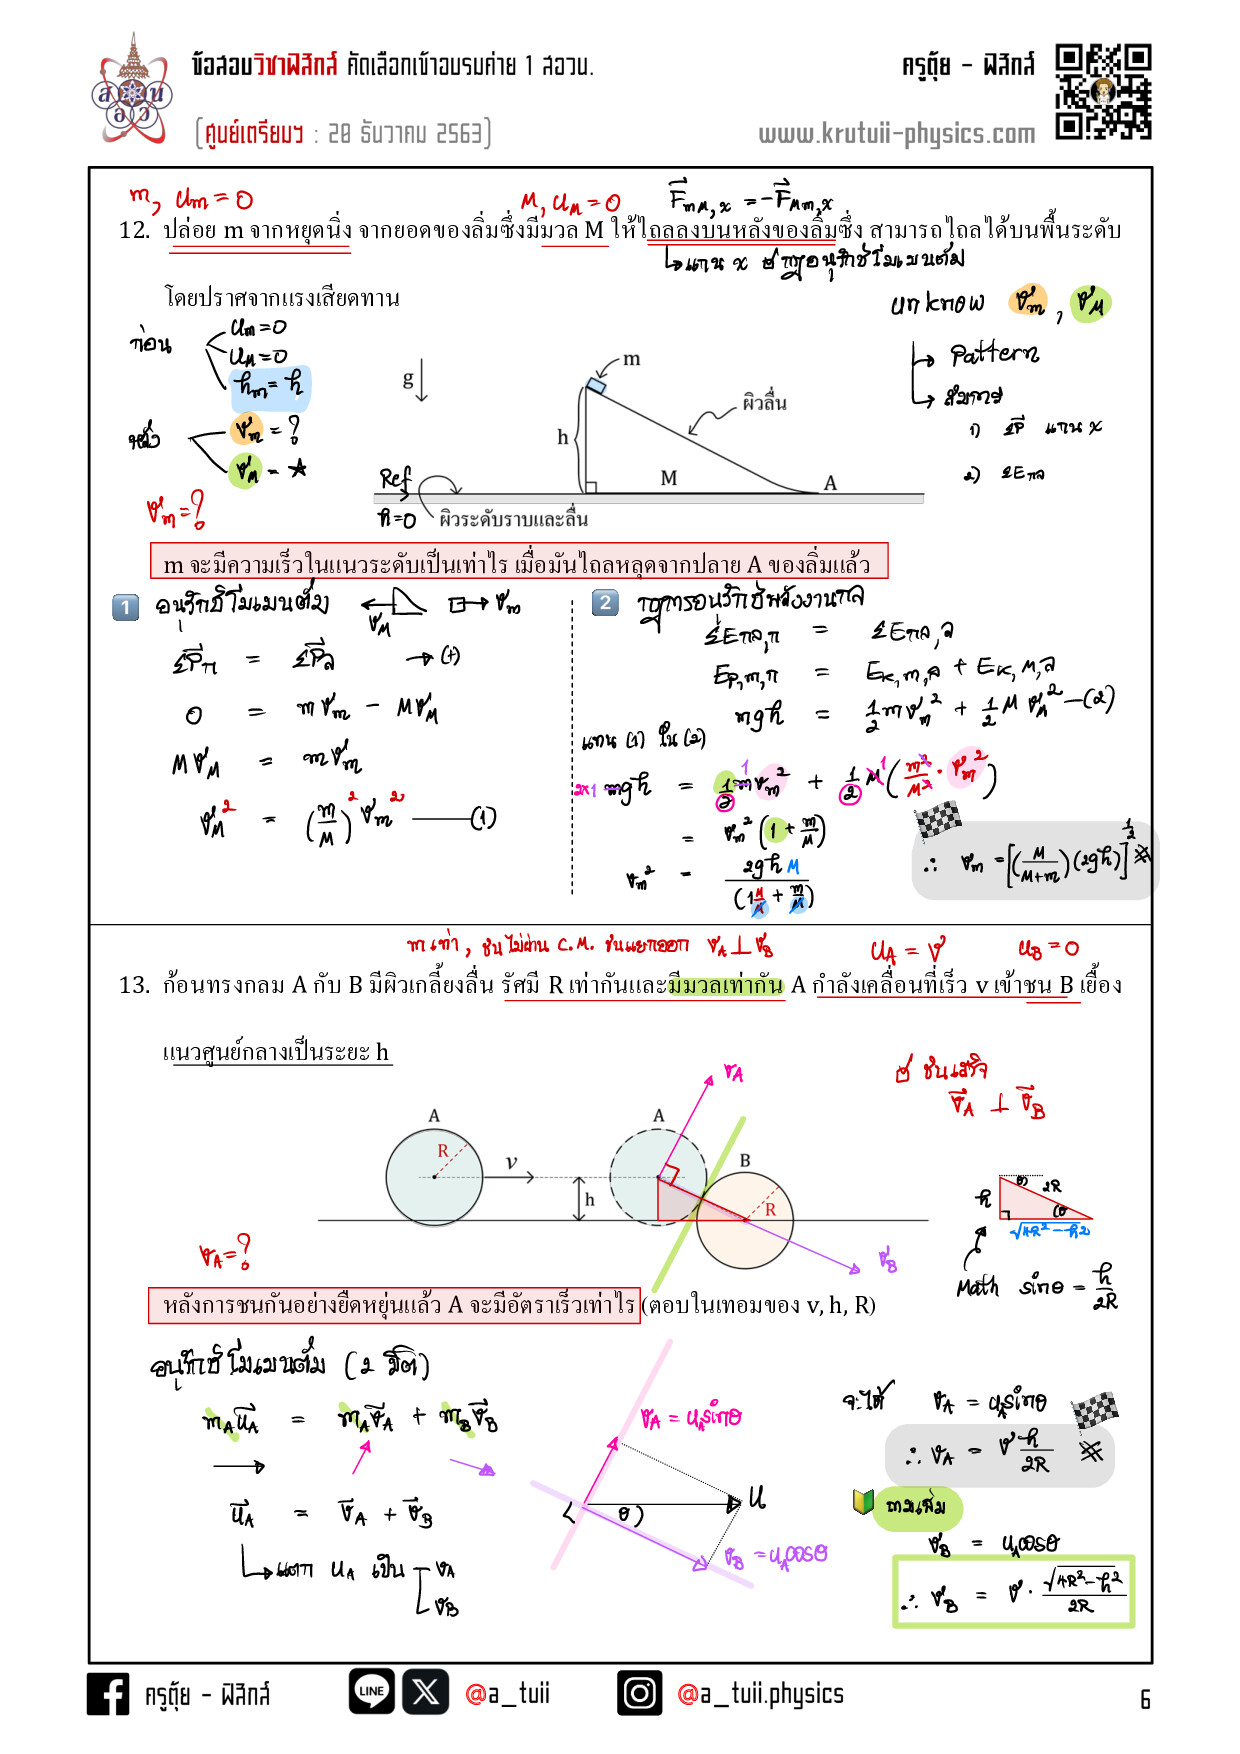 ข้อสอบวิชาฟิสิกส์ คัดเลือกเข้าอบรมค่าย 1 สอวน.
ครูตุ้ย - ฟิสิกส์
ส อ ว น
(ศูนย์เตรียมฯ : 20 ธันวาคม 2563)
www.krutuii-physics.com
m, u_m = 0
M, u_M = 0
F⃗_{mM, x} = -F⃗_{Mm, x}
12. ปล่อย m จากหยุดนิ่ง จากยอดของลิ่มซึ่งมีมวล M ให้ไถลลงบนหลังของลิ่มซึ่ง สามารถไถลได้บนพื้นระดับ
↳ แกน x กฎอนุรักษ์โมเมนตัม
โดยปราศจากแรงเสียดทาน
unknow v_m, v_M
ก่อน u_m = 0
u_M = 0
h_m = h
→ Pattern
→ สมการ
1) ΣP⃗ แกน x
2) ΣEกล
หลัง v_m = ?
v_M = ★
v_m = ?
g
m
ผิวลื่น
h
M
A
Ref
h = 0
ผิวระดับราบและลื่น
m จะมีความเร็วในแนวระดับเป็นเท่าไร เมื่อมันไถลหลุดจากปลาย A ของลิ่มแล้ว
1 อนุรักษ์โมเมนตัม
v_M
v_m
ΣP⃗ก = ΣP⃗ล → (+)
0 = mv_m - Mv_M
Mv_M = mv_m
v_M² = (m/M)² v_m² —(1)
2 กฎการอนุรักษ์พลังงานกล
ΣEกล,ก = ΣEกล,ล
E_{P,m,ก} = E_{K,m,ล} + E_{K,M,ล}
mgh = 1/2 mv_m² + 1/2 M v_M² —(2)
แทน (1) ใน (2)
2×1 mgh = 1/2 m v_m² + 1/2 M (m²/M² · v_m²)
= v_m² (1 + m/M)
v_m² = 2gh M / (1 M/M + m/M)
∴ v_m = [(M/(M+m))(2gh)]^{1/2} ※
m เท่า, ชนไม่ผ่าน C.M. ชนแยกออก v_A ⊥ v_B
u_A = v
u_B = 0
13. ก้อนทรงกลม A กับ B มีผิวเกลี้ยงลื่น รัศมี R เท่ากันและมีมวลเท่ากัน A กำลังเคลื่อนที่เร็ว v เข้าชน B เยื้อง
แนวศูนย์กลางเป็นระยะ h
v_A
ชนเสร็จ
v⃗_A ⊥ v⃗_B
A
R
v
h
A
B
R
v_B
h
θ
2R
θ
√(4R² - h²)
Math sinθ = h/2R
v_A = ?
หลังการชนกันอย่างยืดหยุ่นแล้ว A จะมีอัตราเร็วเท่าไร (ตอบในเทอมของ v, h, R)
อนุรักษ์โมเมนตัม (2 มิติ)
m_A u⃗_A = m_A v⃗_A + m_B v⃗_B
u⃗_A = v⃗_A + v⃗_B
↳ แตก u_A เป็น v_A
v_B
v_A = u_A sinθ
u
θ
v_B = u_A cosθ
จะได้ v_A = u_A sinθ
∴ v_A = v h/2R ※
ถามเพิ่ม
v_B = u_A cosθ
∴ v_B = v · √(4R² - h²)/2R
ครูตุ้ย - ฟิสิกส์
LINE
@a_tuii
@a_tuii.physics
6